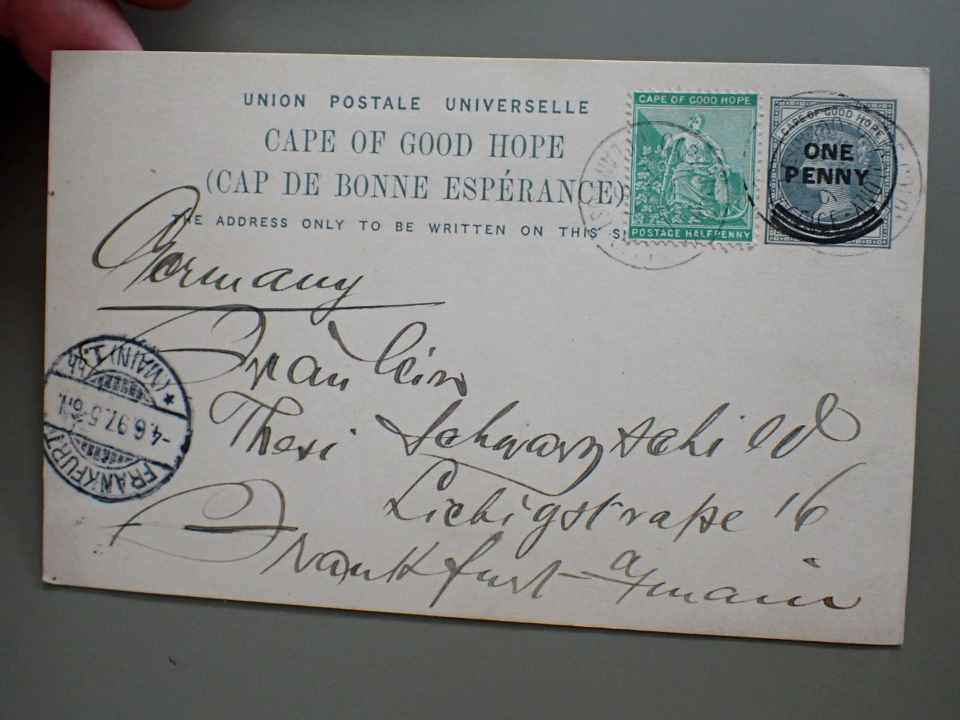 UNION POSTALE UNIVERSELLE
CAPE OF GOOD HOPE
(CAP DE BONNE ESPÉRANCE)
THE ADDRESS ONLY TO BE WRITTEN ON THIS
CAPE OF GOOD HOPE
POSTAGE HALFPENNY
CAPE OF GOOD HOPE
ONE
PENNY
Germany
Fräulein
Thesi Schwarzschild
Liebigstraße 16
Frankfurt a/main
FRANKFURT
-4.6.97.5-6N.
* (MAIN) 1.